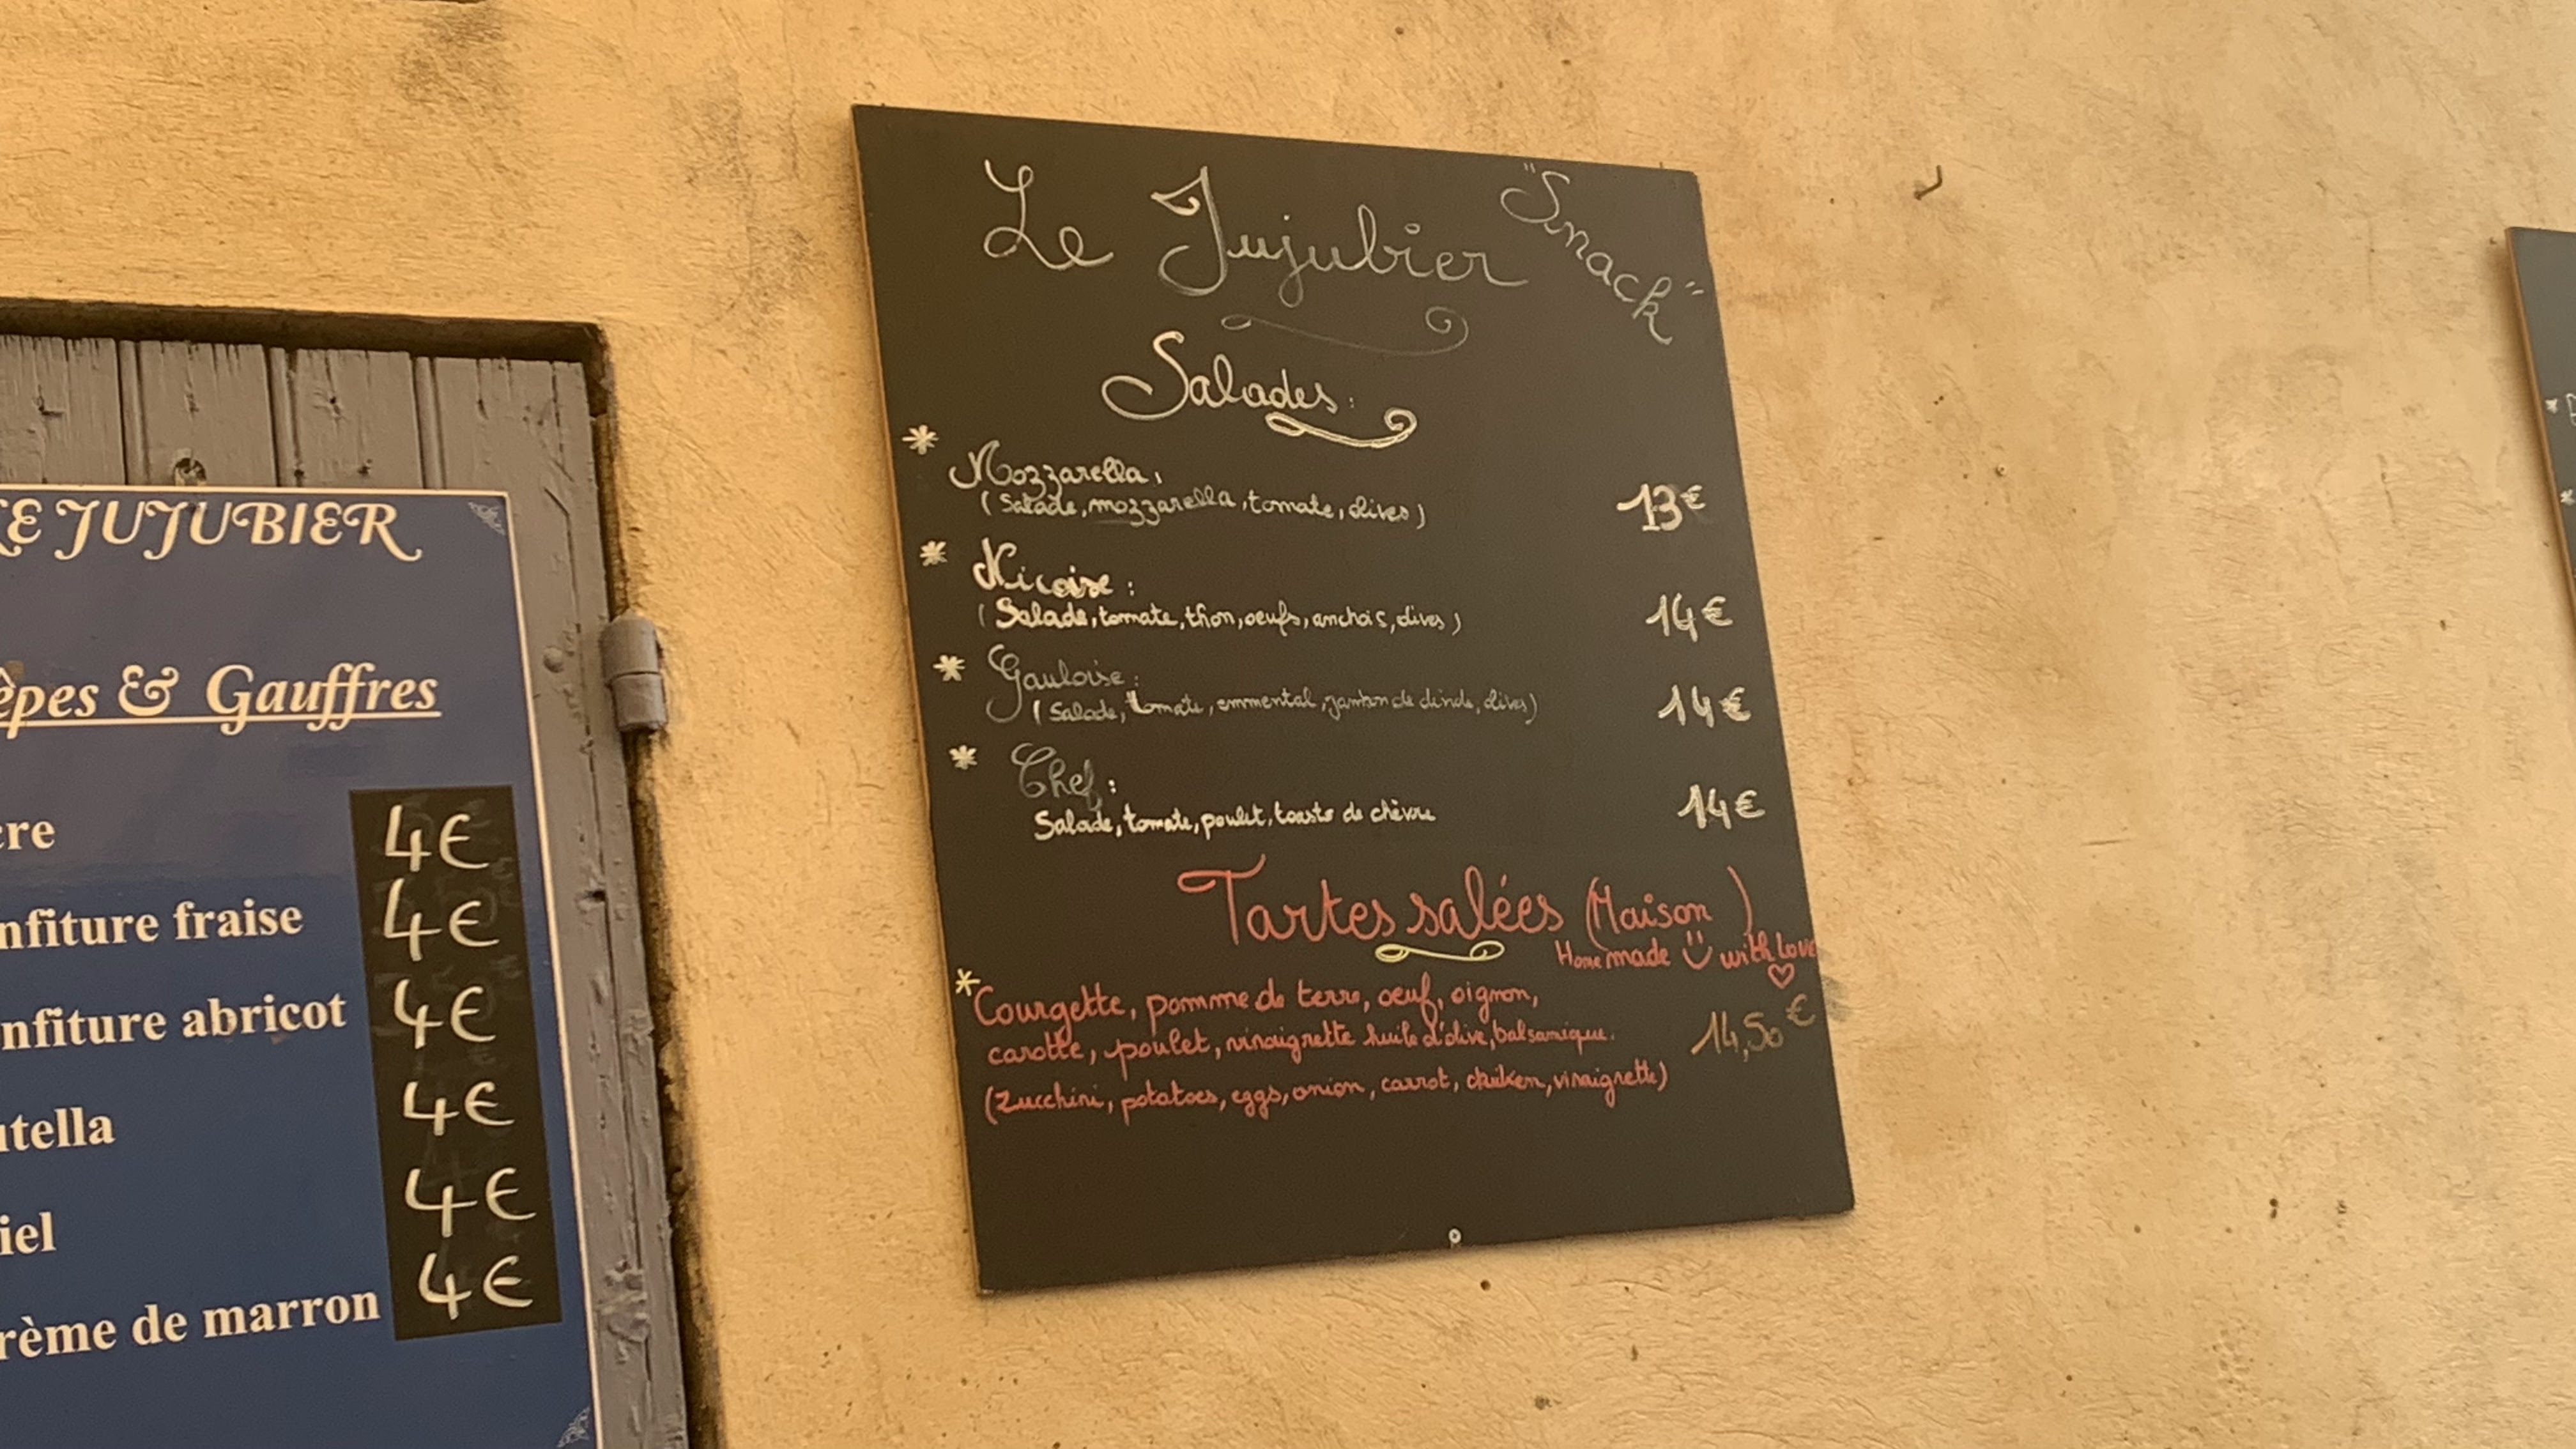 LE JUJUBIER
êpes & Gauffres
cre 4€
nfiture fraise 4€
nfiture abricot 4€
utella 4€
iel 4€
rème de marron 4€
Le Jujubier "Snack"
Salades :
* Mozzarella :
(Salade, mozzarella, tomate, olives) 13€
* Nicoise :
(Salade, tomate, thon, oeufs, anchois, olives) 14€
* Gauloise :
(Salade, tomate, emmental, jambon de dinde, olives) 14€
* Chef :
Salade, tomate, poulet, toasts de chèvre 14€
Tartes salées (Maison)
Home made with Love
* Courgette, pomme de terre, oeuf, oignon,
carotte, poulet, vinaigrette huile d'olive, balsamique. 14,50€
(Zucchini, potatoes, eggs, onion, carrot, chiken, vinaigrette)